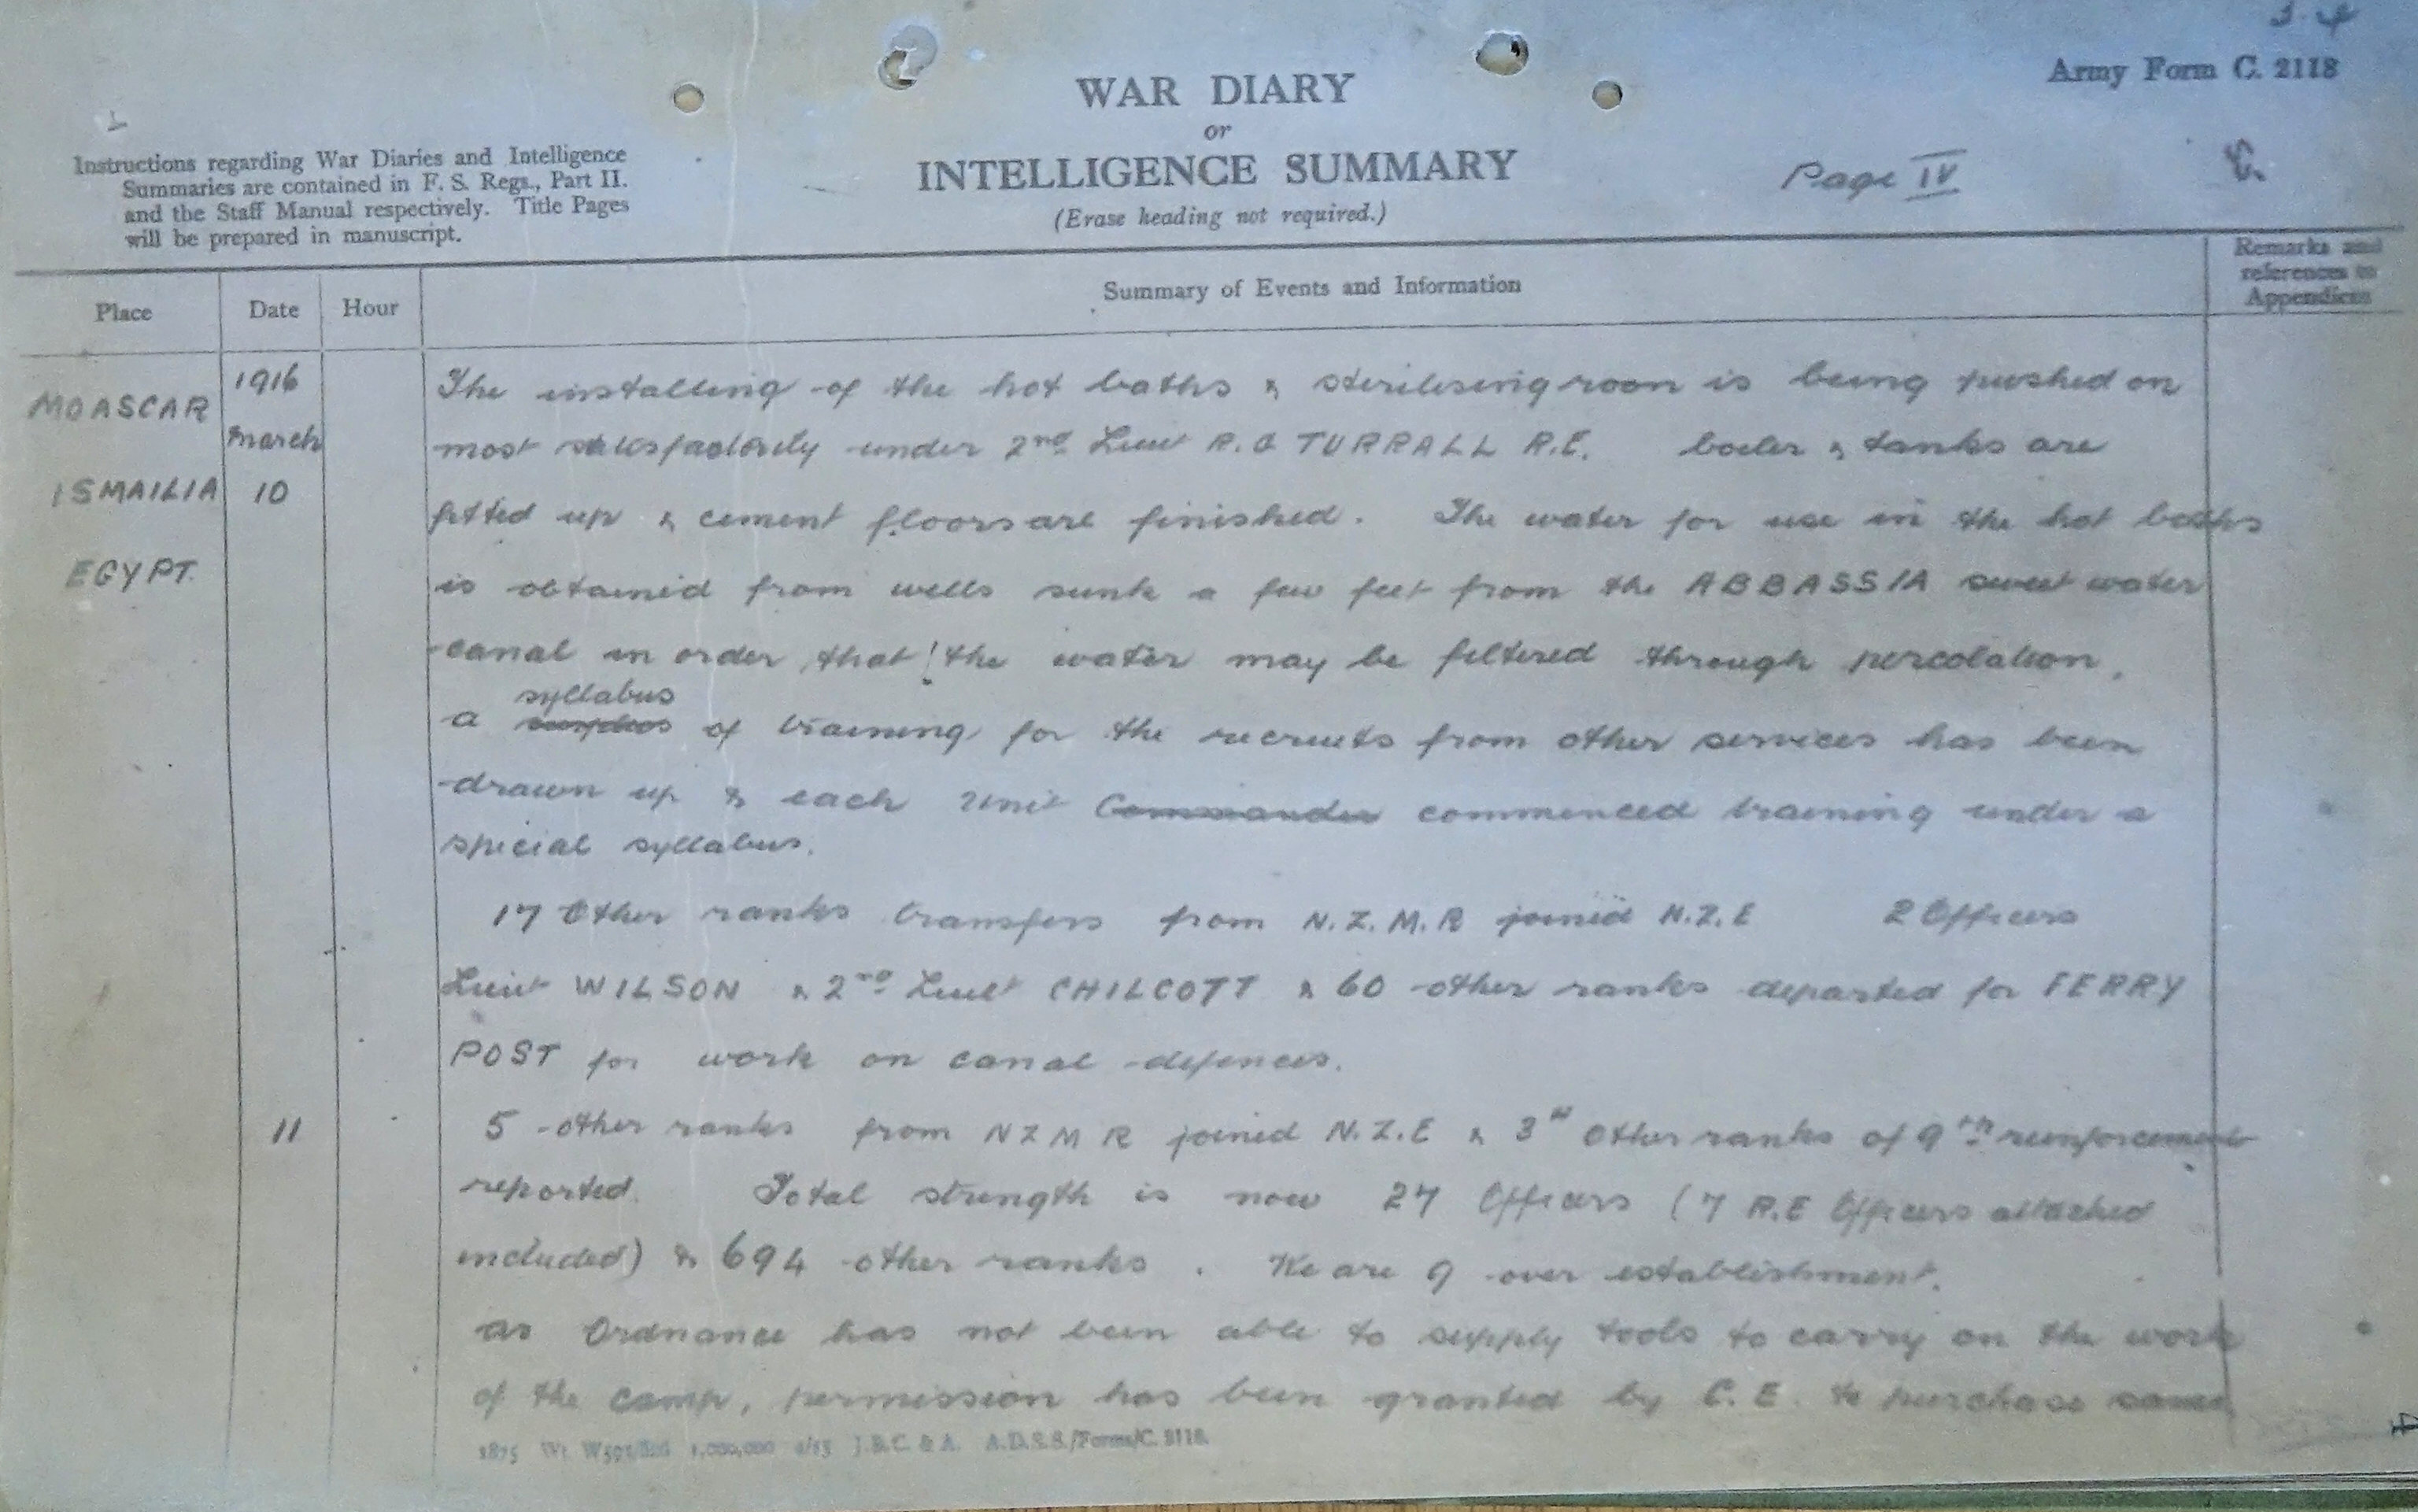 Army Form C. 2118
WAR DIARY
or
INTELLIGENCE SUMMARY
(Erase heading not required.)
Page IV
Instructions regarding War Diaries and Intelligence
Summaries are contained in F. S. Regs., Part II.
and the Staff Manual respectively. Title Pages
will be prepared in manuscript.
Place Date Hour Summary of Events and Information Remarks and references to Appendices
MOASCAR
ISMAILIA
EGYPT.
1916
March
10
The installing of the hot baths & sterilising room is being pushed on
most satisfactorily under 2nd Lieut R. TURRALL R.E. boiler & tanks are
fitted up & cement floors are finished. The water for use in the hot baths
is obtained from wells sunk a few feet from the ABBASSIA sweet water
canal in order that the water may be filtered through percolation.
a syllabus of training for the recruits from other services has been
drawn up & each Unit Commander commenced training under a
special syllabus.
17 Other ranks transfers from N.Z.M.R joined N.Z.E 2 Officers
Lieut WILSON & 2nd Lieut CHILCOTT & 60 other ranks departed for FERRY
POST for work on canal defences.
11
5 other ranks from NZMR joined N.Z.E & 3 Other ranks of 9th reinforcement
reported. Total strength is now 27 Officers (7 R.E Officers attached
included) & 694 other ranks. We are 9 over establishment.
as Ordnance has not been able to supply tools to carry on the work
of the camp, permission has been granted by C.E. to purchase same
1875 Wt 1,000,000 J.B.C. & A. A.D.S.S./Forms/C. 2118.